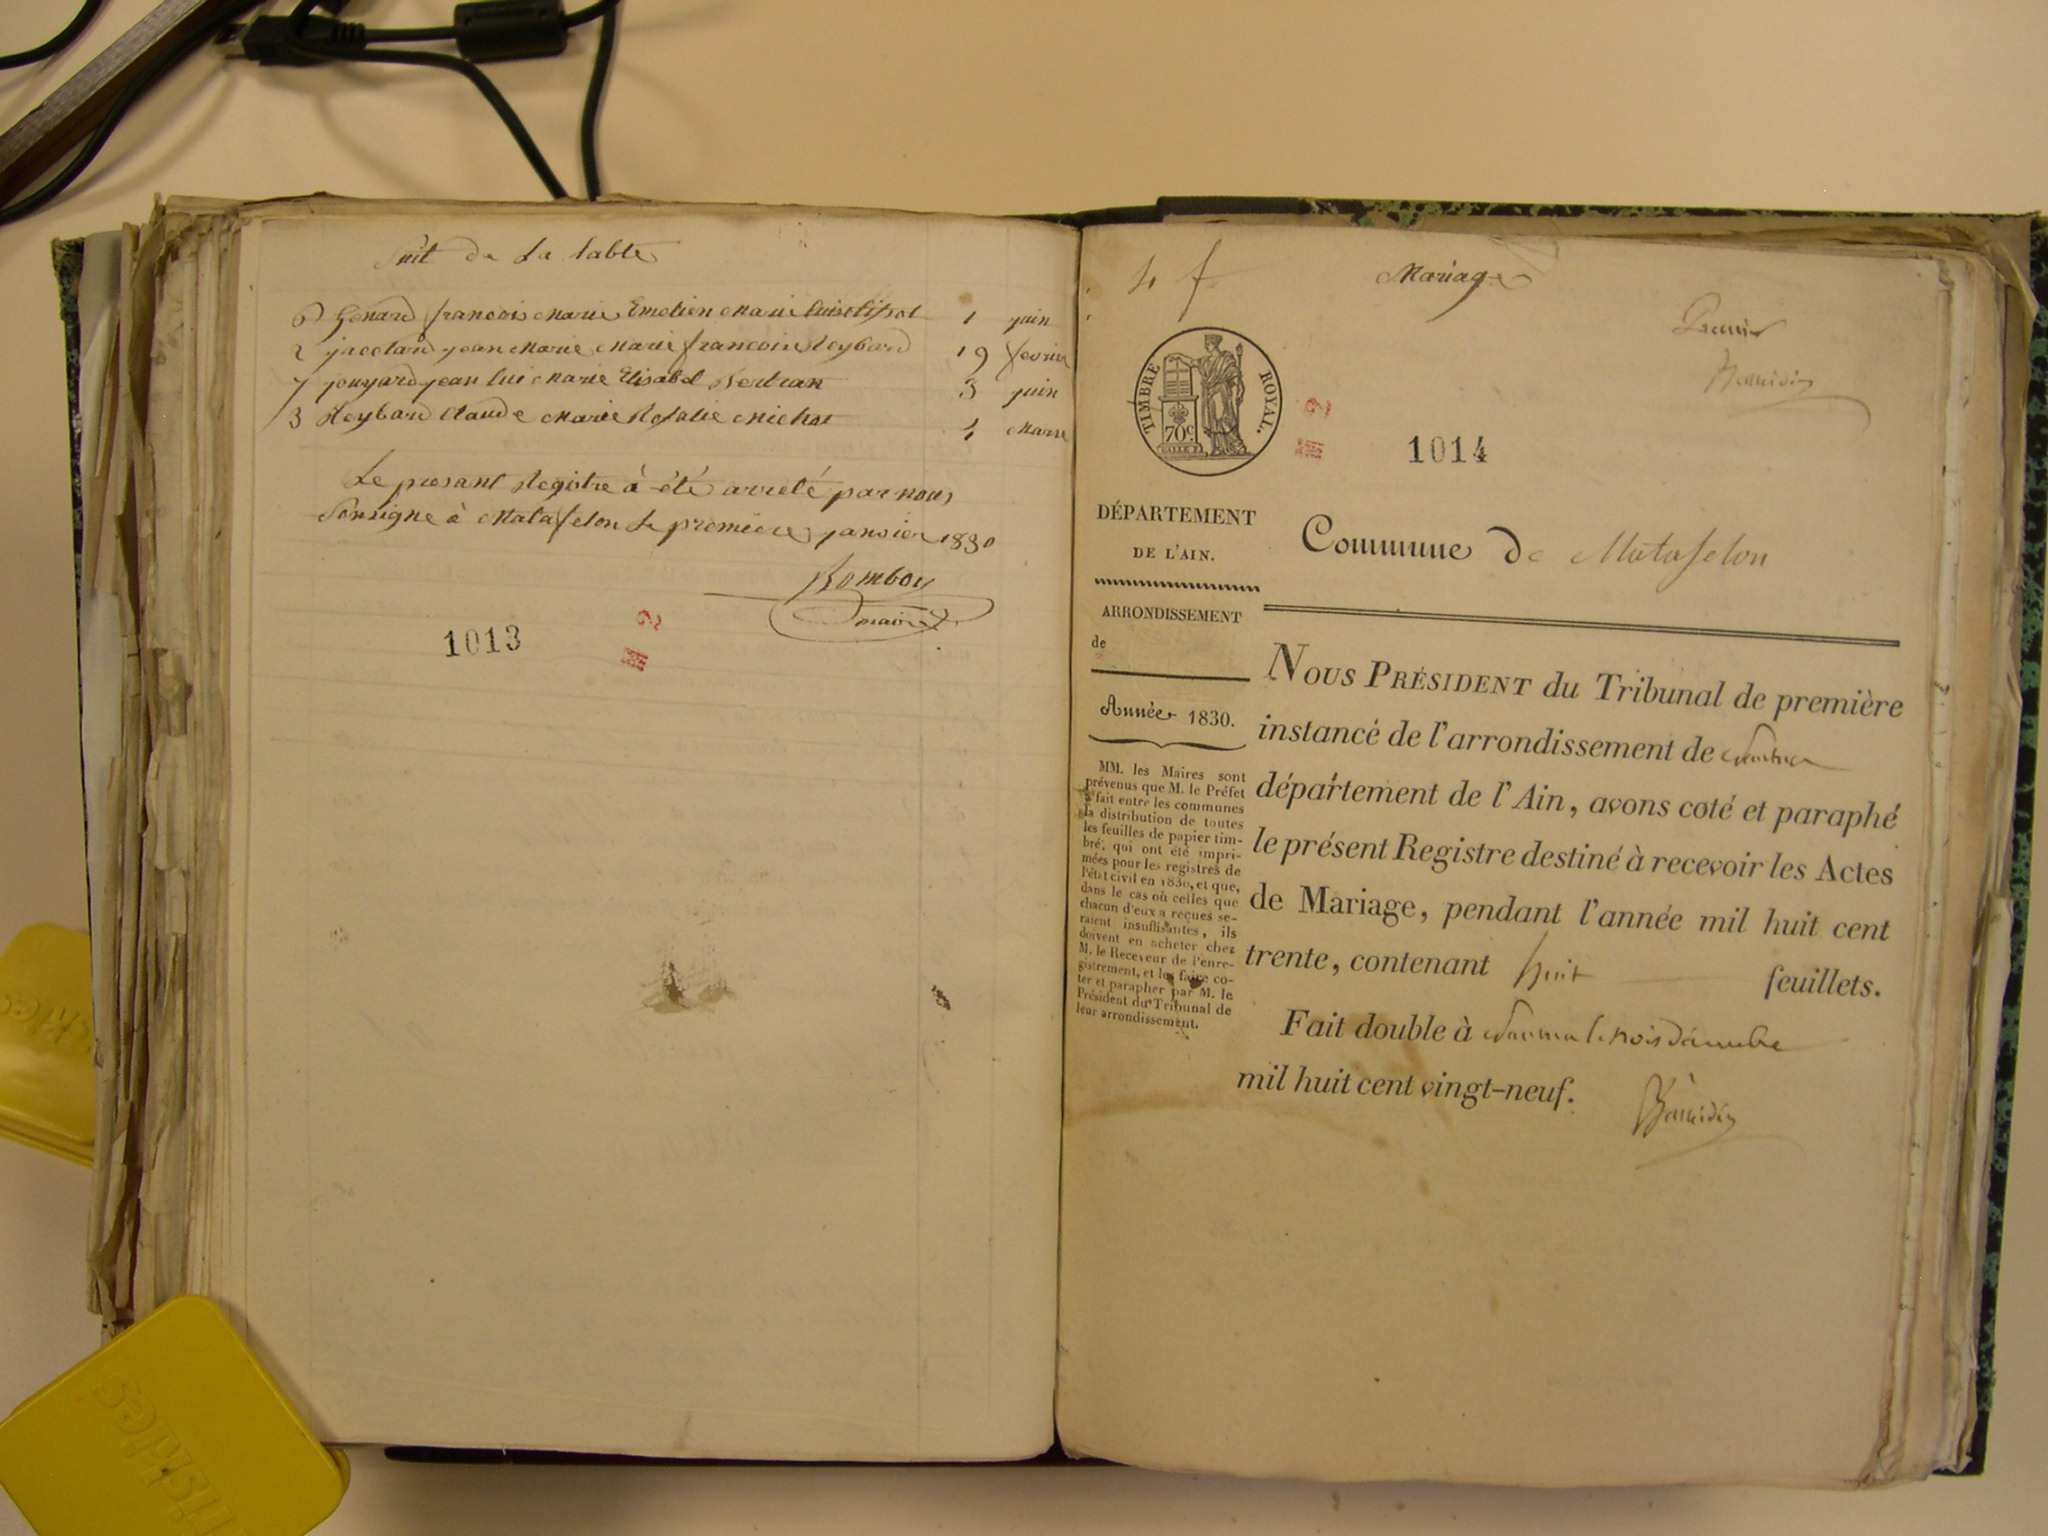 Suit de La table
6 Genard francois marie Emelien marie 1 juin
2 jacolard jean marie marie francoise Reybard 19 fevrier
7 jouyard jean lui marie Elisabet Bertran 3 juin
3 Reybard Claude marie Rosalie Michat 4 marse
Le presant Registre à été arreté par nous
Sousigne à Matafelon le premiere janvier 1830
Rombou
maire
1013
4 f
Mariage
Premier
TIMBRE ROYAL.
70c
1014
DÉPARTEMENT
DE L'AIN.
Commune de Matafelon
ARRONDISSEMENT
de
Année 1830.
MM. les Maires sont
prévenus que M. le Préfet
a fait entre les communes
la distribution de toutes
les feuilles de papier tim-
bré, qui ont été impri-
mées pour les registres de
l'état civil en 1830, et que,
dans le cas où celles que
chacun d'eux a reçues se-
raient insuffisantes, ils
doivent en acheter chez
M. le Receveur de l'enre-
gistrement, et les faire co-
ter et parapher par M. le
Président du Tribunal de
leur arrondissement.
NOUS PRÉSIDENT du Tribunal de première
instancé de l'arrondissement de Nantua
département de l'Ain, avons coté et paraphé
le présent Registre destiné à recevoir les Actes
de Mariage, pendant l'année mil huit cent
trente, contenant huit feuillets.
Fait double à Nantua
mil huit cent vingt-neuf.